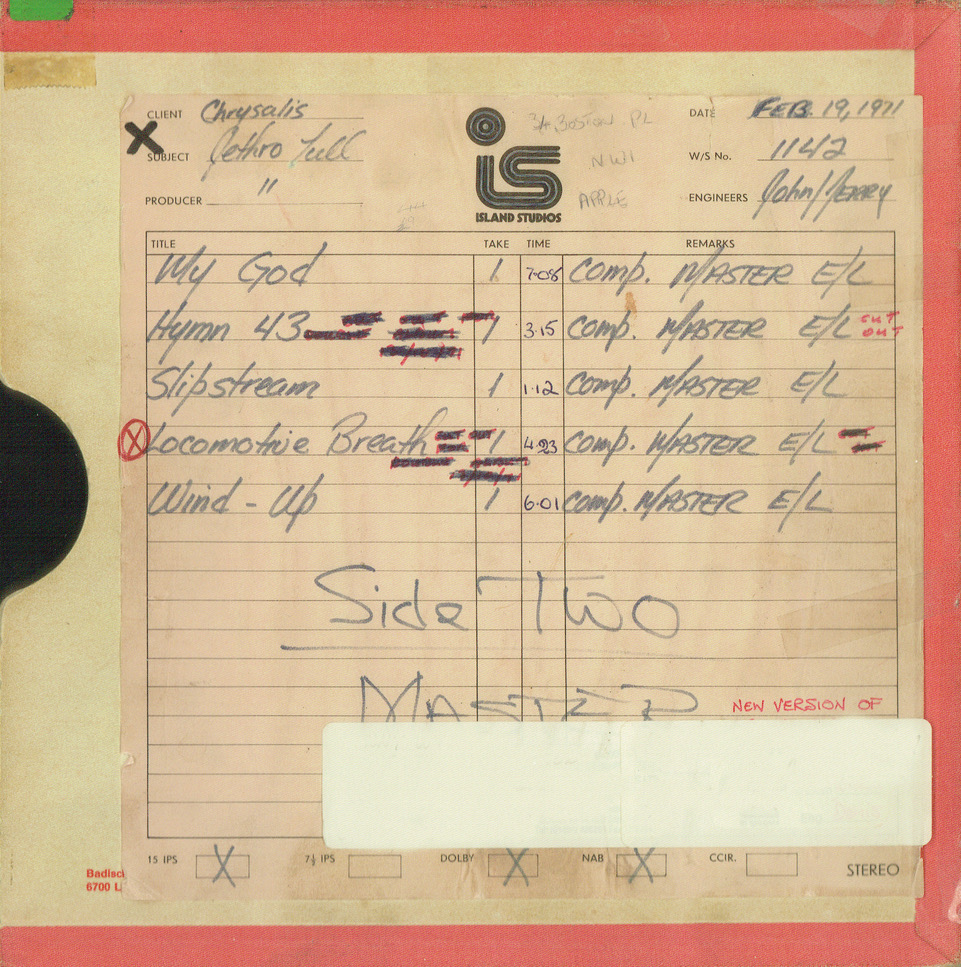 CLIENT Chrysalis
SUBJECT Jethro Tull
PRODUCER "
iS
ISLAND STUDIOS
3/4 BOSTON PL
NW1
APPLE
DATE FEB. 19, 1971
W/S No. 1142
ENGINEERS John/Jerry
TITLE TAKE TIME REMARKS
My God 1 7·08 Comp. MASTER E/L
Hymn 43 1 3·15 Comp. MASTER E/L CUT OUT
Slipstream 1 1·12 Comp. MASTER E/L
Locomotive Breath 1 4·23 Comp. MASTER E/L
Wind-Up 1 6·01 Comp. MASTER E/L
Side Two
MASTER
NEW VERSION OF
15 IPS X 7½ IPS DOLBY X NAB X CCIR. STEREO
Badisch
6700 L